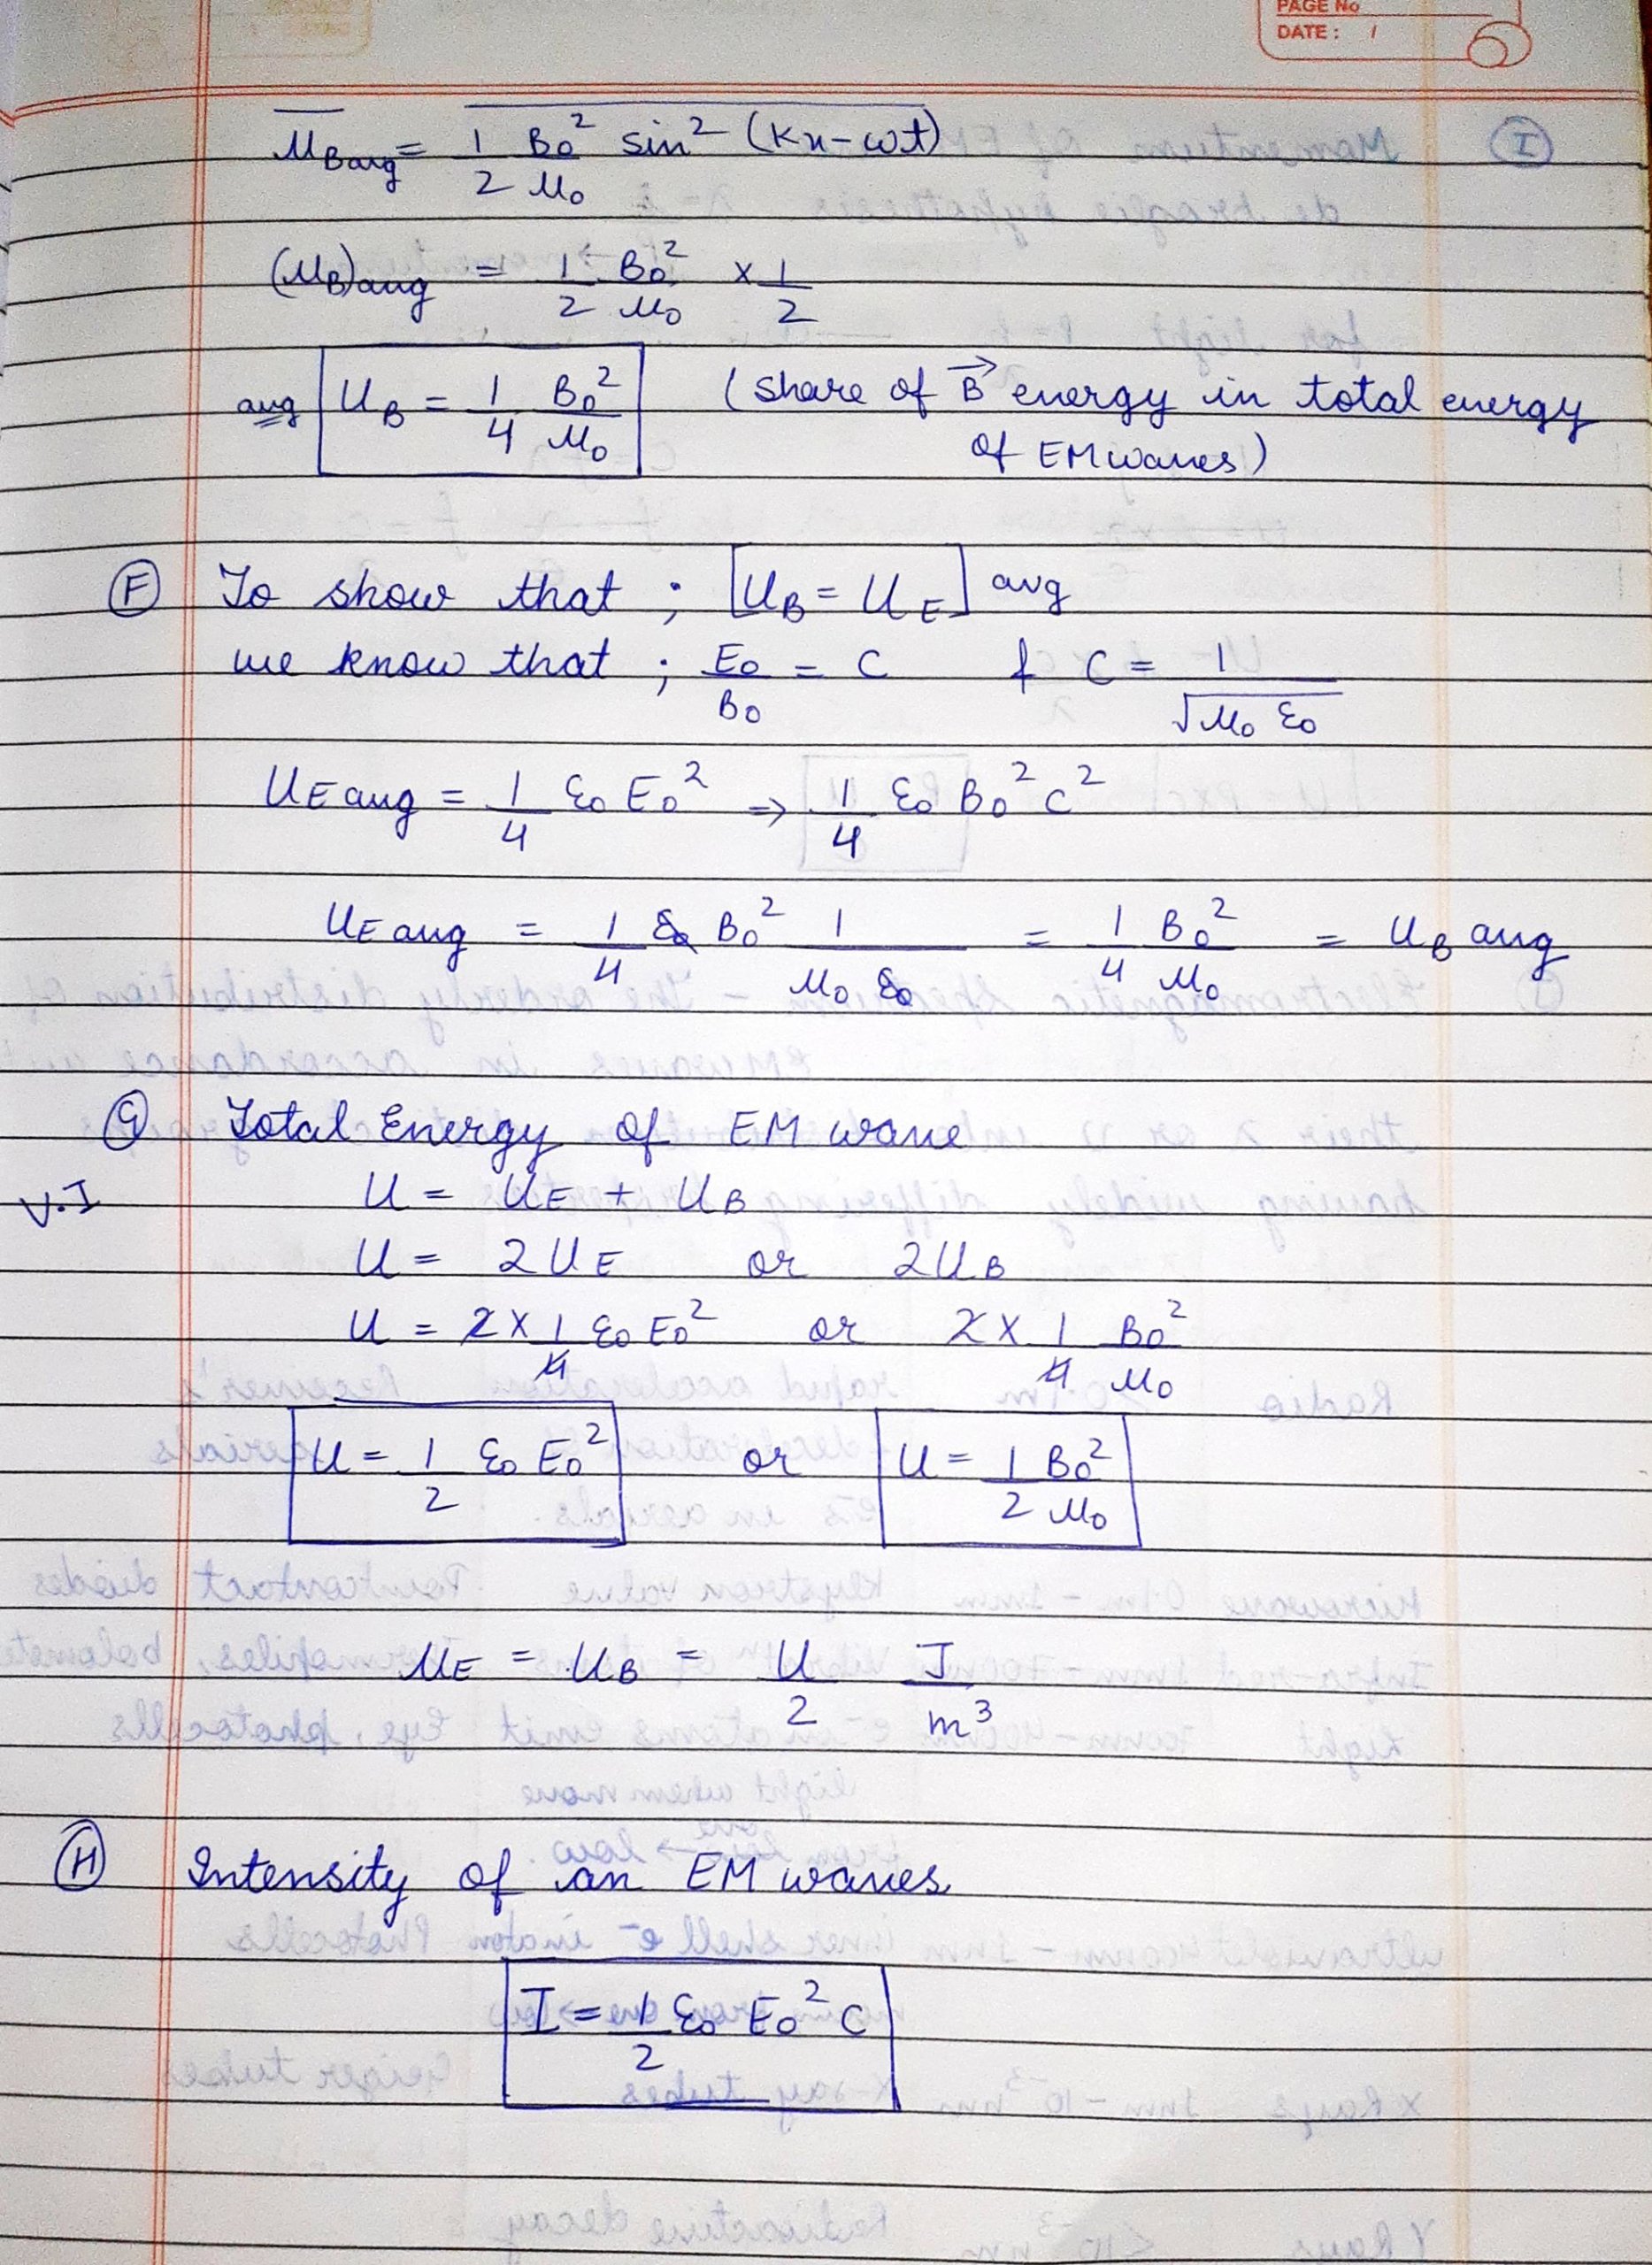 PAGE No
DATE : /
5
U̅_B avg = 1/2 B₀²/μ₀ sin² (Kx-ωt)
(U_B)avg = 1/2 B₀²/μ₀ × 1/2
avg U_B = 1/4 B₀²/μ₀ (share of B⃗ energy in total energy
of EM waves)
(F) To show that ; [U_B = U_E] avg
we know that ; E₀/B₀ = C & C = 1/√μ₀ ε₀
U_E avg = 1/4 ε₀ E₀² ⇒ 1/4 ε₀ B₀² C²
U_E avg = 1/4 ε₀ B₀² 1/μ₀ ε₀ = 1/4 B₀²/μ₀ = U_B avg
(G) Total Energy of EM wave
V.I U = U_E + U_B
U = 2U_E or 2U_B
U = 2 × 1/4 ε₀ E₀² or 2 × 1/4 B₀²/μ₀
U = 1/2 ε₀ E₀² or U = 1/2 B₀²/μ₀
U_E = U_B = U/2 J/m³
(H) Intensity of an EM waves
I = 1/2 ε₀ E₀² C